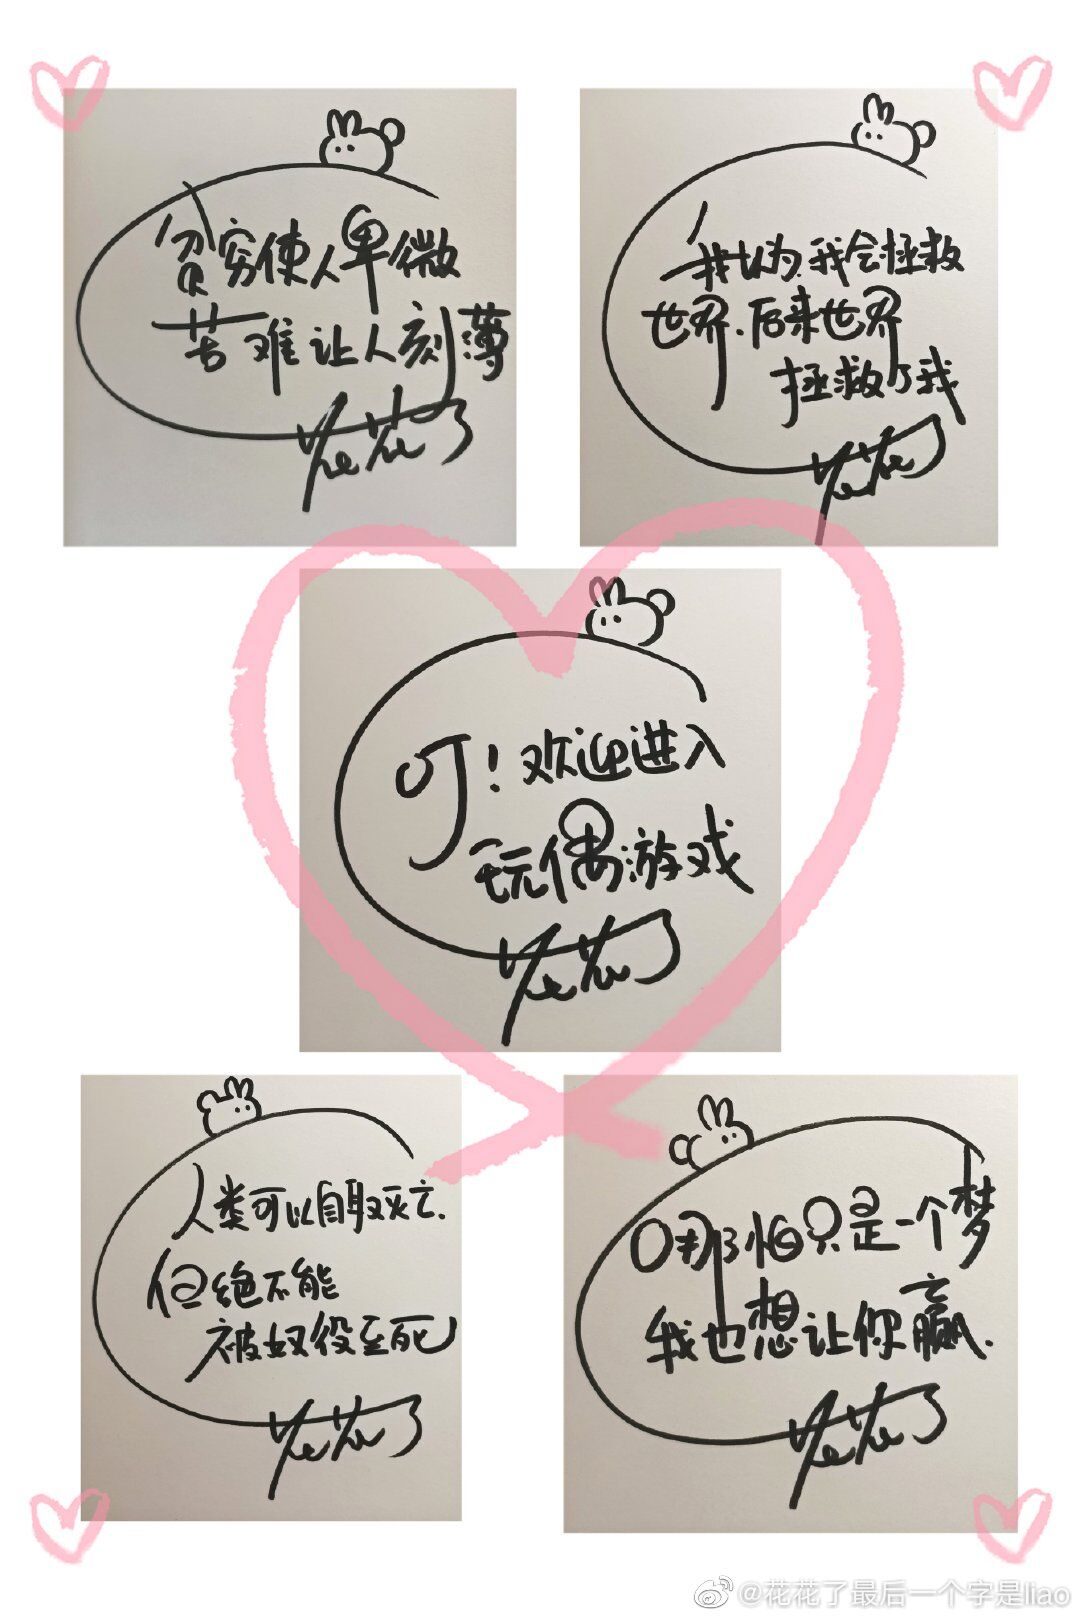 贫穷使人卑微
苦难让人刻薄
花花了
我认为.我会拯救
世界.后来世界
拯救了我
花花了
叮！欢迎进入
玩偶游戏
花花了
人类可以自取灭亡.
但绝不能
被奴役至死
花花了
哪怕只是一个梦
我也想让你赢.
花花了
@花花了最后一个字是liao